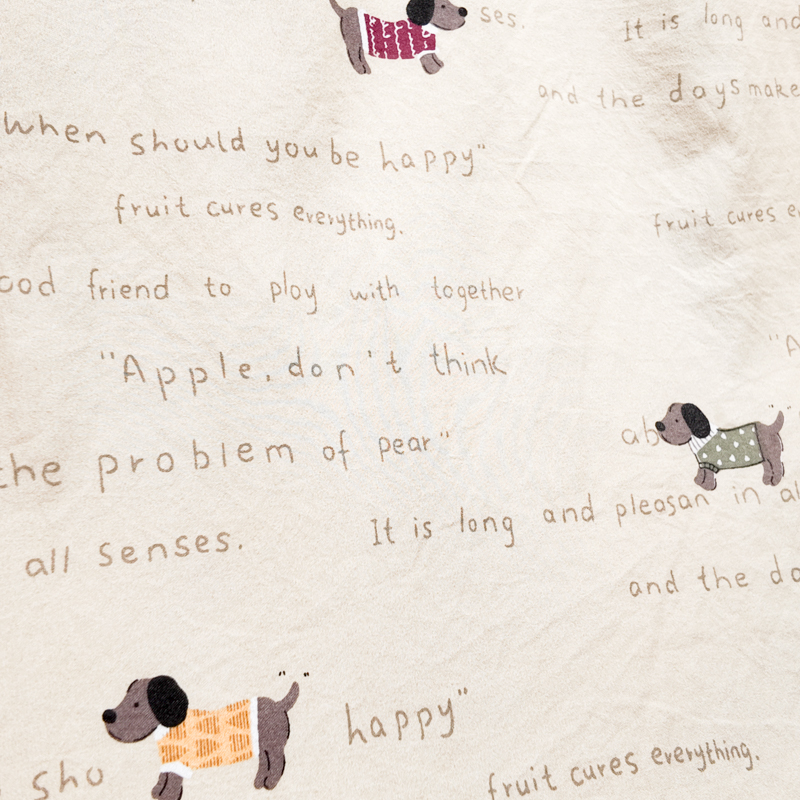 ses.
It is long and
and the days make
when should you be happy"
fruit cures everything.
fruit cures e
ood friend to play with together
"A
"Apple, don't think
ab
the problem of pear"
It is long and pleasan in al
all senses.
and the da
happy"
sho
fruit cures everything.